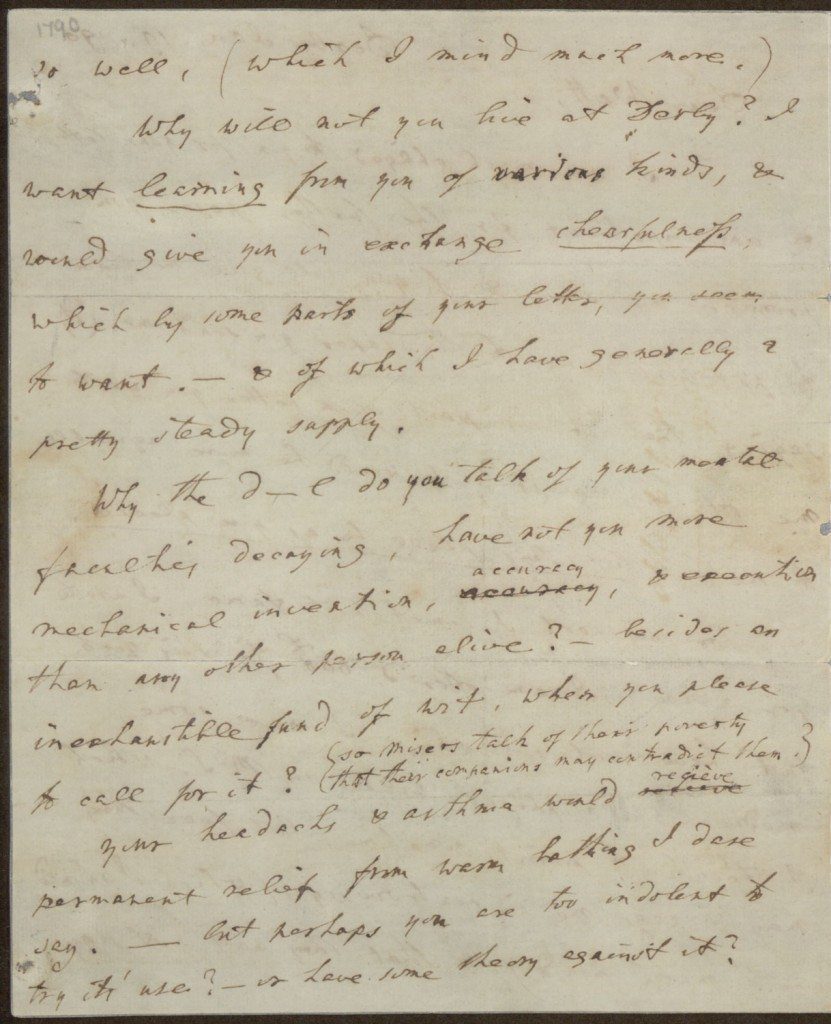 1790
so well, (which I mind much more.)
Why will not you live at Derby? I
want learning from you of various kinds, &
would give you in exchange chearfulness,
which by some parts of your letter, you seem
to want. — & of which I have generally a
pretty steady supply.
Why the d—l do you talk of your mental
faculties decaying, have not you more
mechanical invention, accuracy, & execution
than any other person alive? — besides an
inexhaustible fund of wit, when you please
to call for it? (so misers talk of their poverty
that their companions may contradict them.)
Your headachs & asthma would recieve
permanent relief from warm bathing I dare
say. — but perhaps you are too indolent to
try its' use? — or have some theory against it?